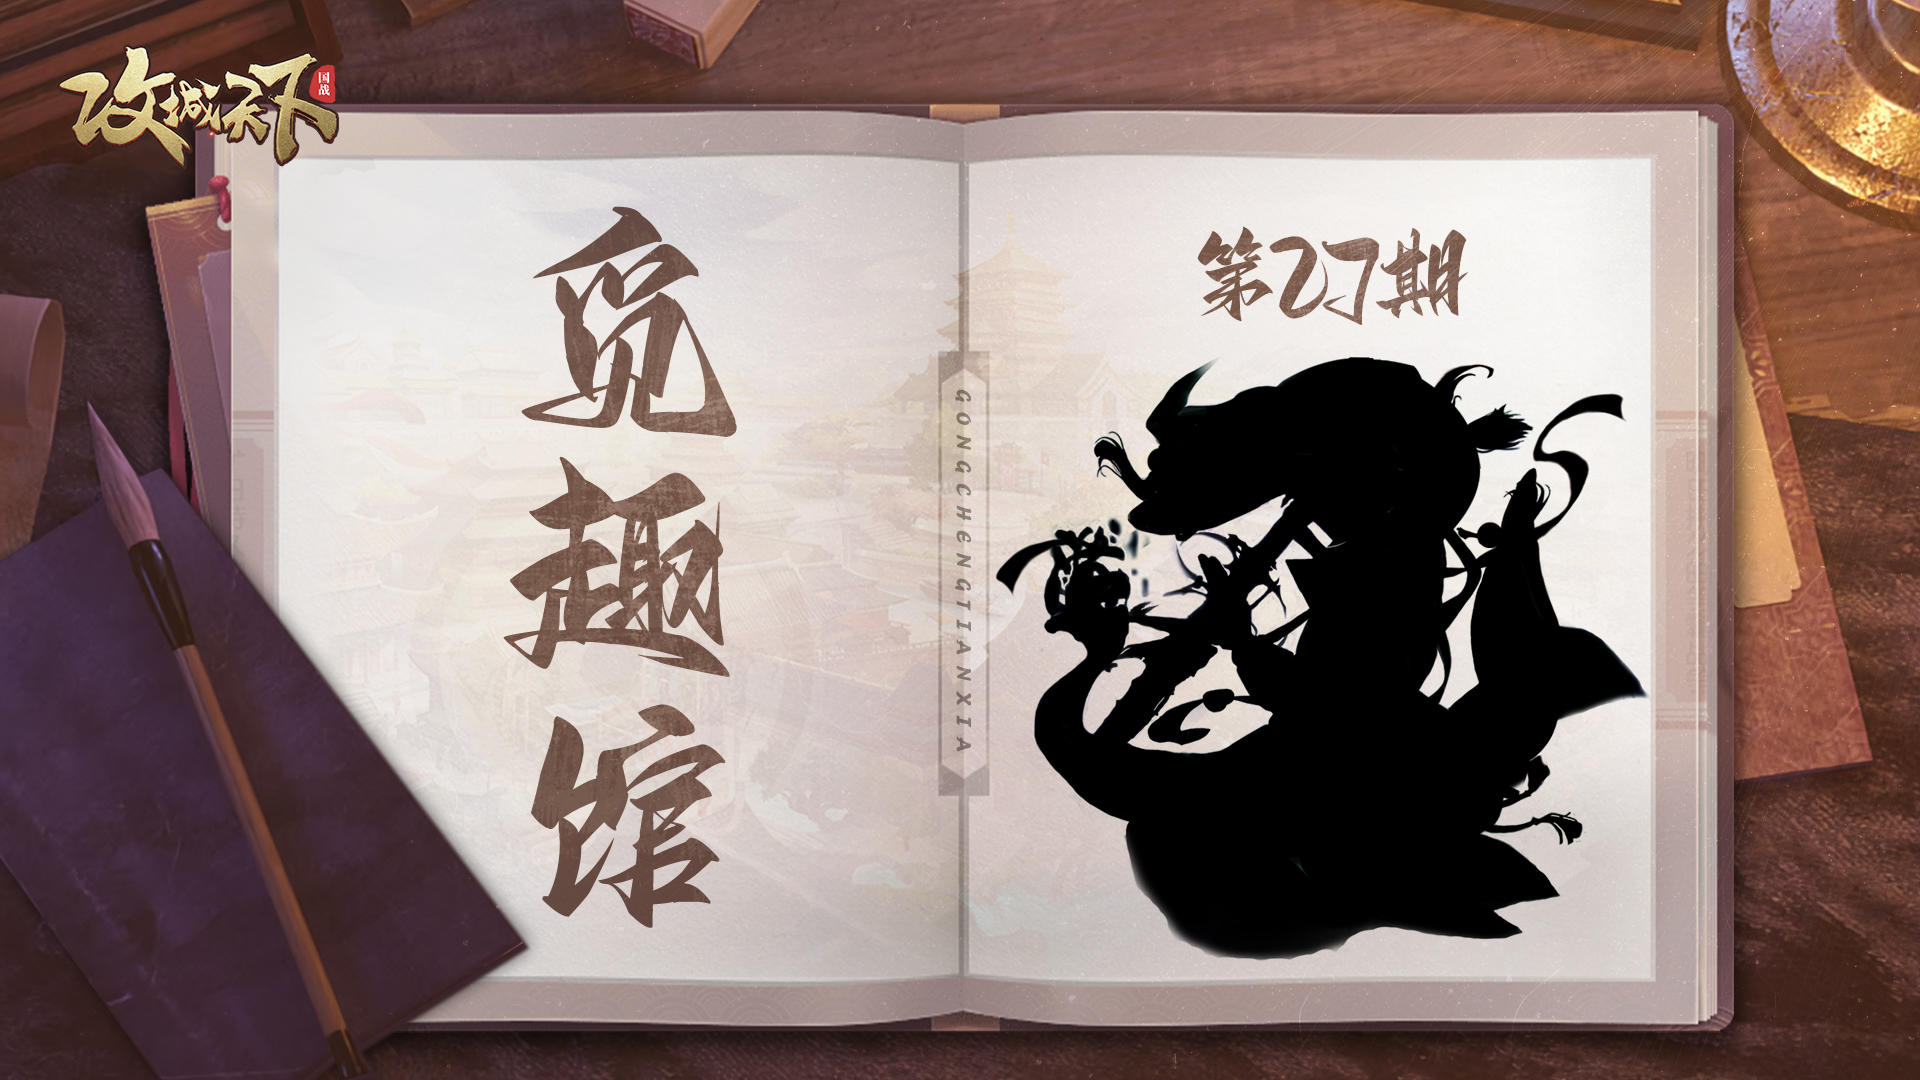 攻城天下
国战
觅趣馆
第27期
GONGCHENGTIANXIA